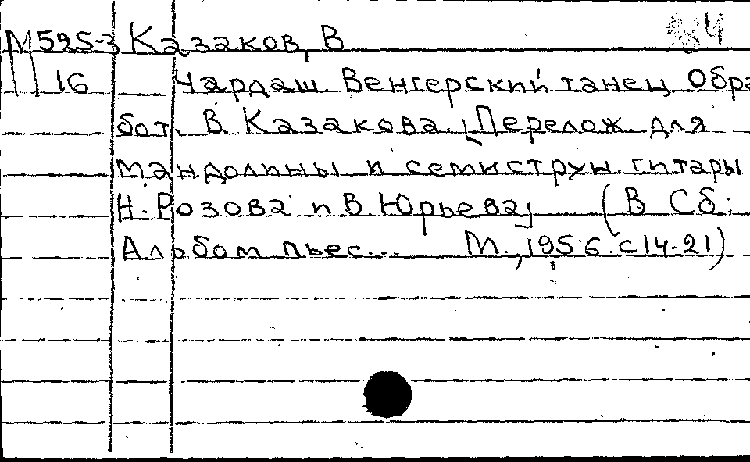 М 525-3 Казаков, В
16 Чардаш Венгерский танец Обра
бот. В Казакова, Перелож для
мандолины и семиструн. гитары
Н. Розова и В. Юрьева, (В Сб:
Альбом пьес... М., 1956. с 14-21)